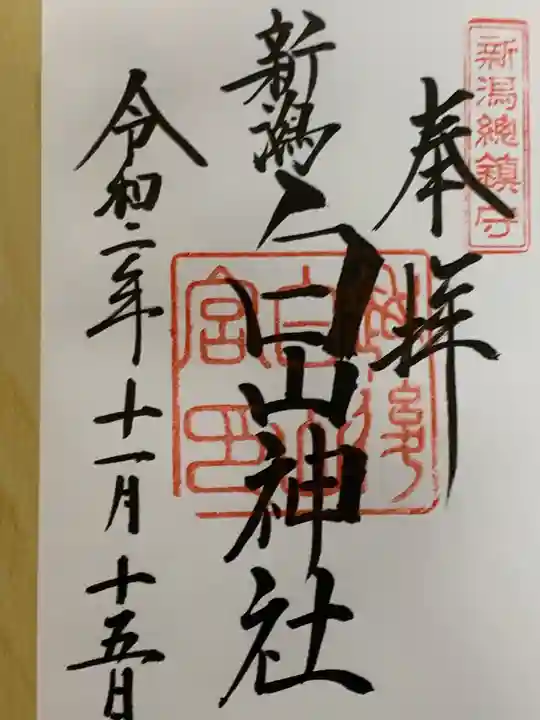 新潟總鎮守
奉拝
新潟白山神社
令和二年十一月十五日